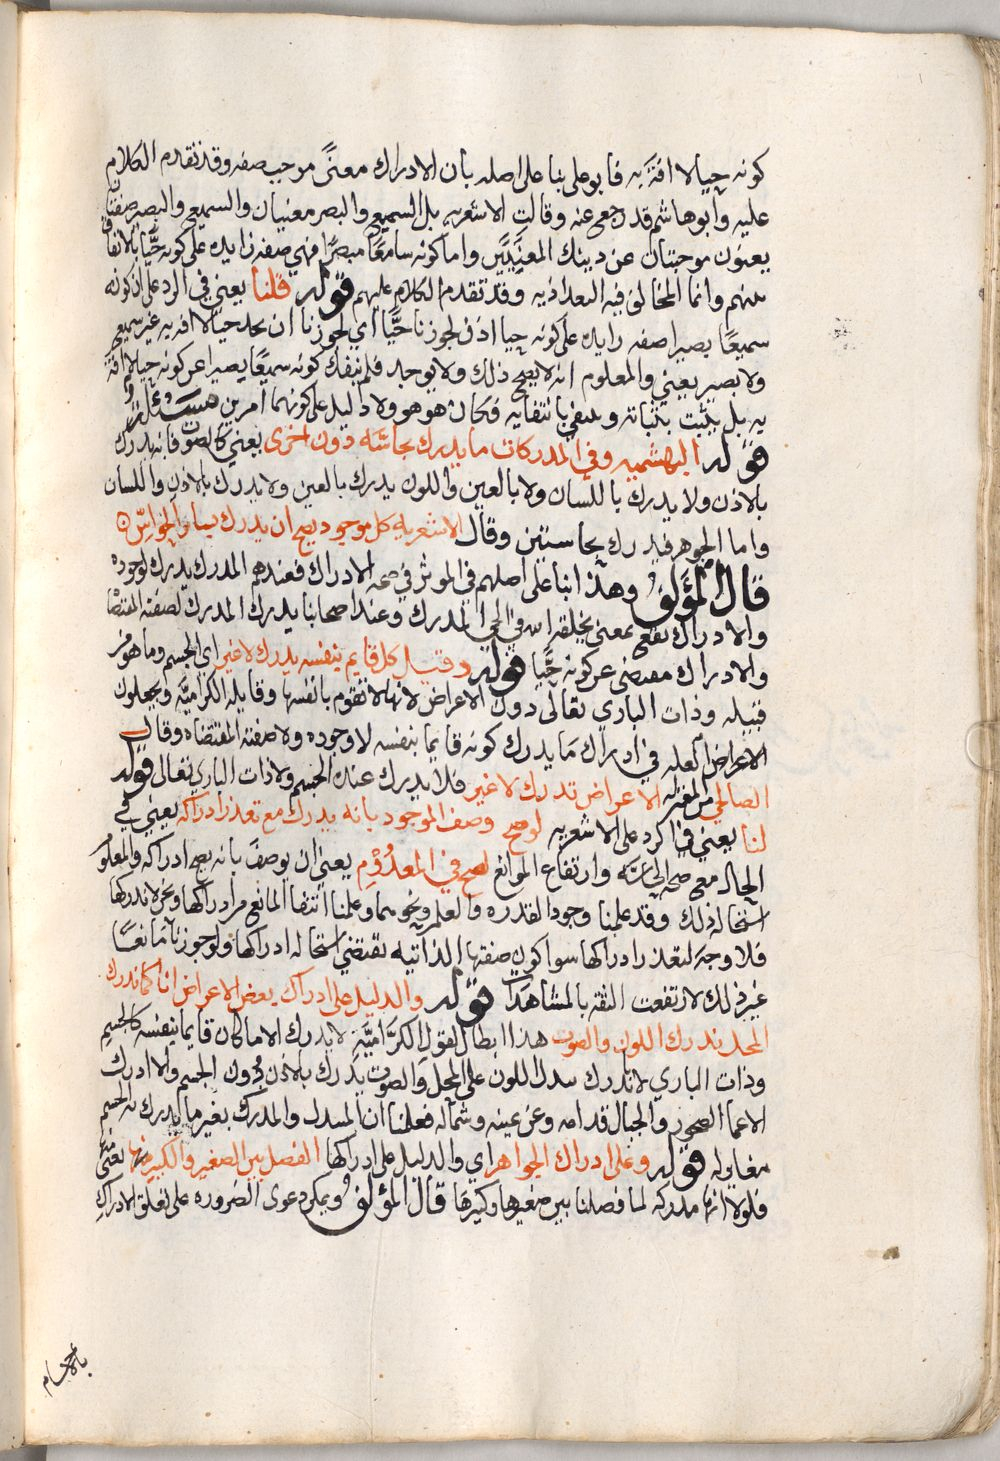 كونه حيا لا افة به فابو على بنا على اصله بان الادراك معنًى موجب صفه وقد تقدم الكلام
عليه وابو هاشم قد رجع عنه وقالت الاشعريه بل السميع والبصر معنيان والسميع والبصير صفتان
يعنون موجبتان عن ذينك المعنَيَيْن واما كونه سامعًا مبصرًا فهي صفه زايده على كونه حيًّا بالاتفاق
منهم وانما المخالف فيه البغداذيه وقد تقدم الكلام عليهم قوله قلنا يعني في الرد على ان كونه
سميعًا بصيرا صفه زايده على كونه حيا اذن لجوزنا حيًّا اي لجوزنا ان نجد حيا لا افه به غير سميع
ولا بصير يعني والمعلوم انه لا يصح ذلك ولا يوجد فلم ينفك كونه سميعًا بصيرا عن كونه حيا لا افة
به بل يثبت بثباته وينتفي بانتفايه فكان هو هو ولا دليل على كونهما امرين مسئلة و
قوله البهشميه وفي المدركات ما يدرك بحاسّه دون اخرى يعني كالصوت فانه يدرك
بالاذن ولا يدرك باللسان ولا بالعين واللون يدرك بالعين ولا يدرك بالاذن واللسان
واما الجوهر فيدرك بحاستين وقال الاشعريه كل موجود يصح ان يدرك بساير الحواسّ
قال المؤلف وهذا بنا على اصلهم في الموثر في صحه الادراك فعندهم المدرك يدرك لوجوده
والادراك يقع بمعنى يخلقه الله في الحي المدرك وعند اصحابنا يدرك المدرك لصفته المقتضاة
والادراك مقتضى عن كونه حيًّا قوله وقيل كل قايم بنفسه يدرك لا غير اى الجسم وما هو من
قبيله وذات الباري تعالى دون الاعراض لانها لا تقوم بانفسها وقايله الكراميّة ويجعلون
الاعراض العله في ادراك ما يدرك كونه قايما بنفسه لا وجوده ولا صفته المقتضاه وقال
الصالحي من المعتزله الاعراض تدرك لا غير فلا يدرك عنده الجسم ولا ذات الباري تعالى قوله
لنا يعني في الرد على الاشعريه لو صح وصف الموجود بانه يدرك مع تعذر ادراكه يعني في
الحال مع صحه الحاسّه وارتفاع الموانع لصح في المعدُوم يعني ان يوصف بانه يصح ادراكه والمعلوم
استحاله ذلك وقد علمنا وجود القدره والعلم ونحوهما وعلمنا انتفا المانع من ادراكها ونحن لا ندركها
فلا وجه لتعذر ادراكها سوا كون صفتها الذاتيه تقتضي استحاله ادراكها ولو جوزنا مانعًا
غير ذلك لارتفعت الثقة بالمشاهدات قوله والدليل على ادراك بعض الاعراض انا كما ندرك
المحل ندرك اللون والصوت هذا ابطال لقول الكرَّاميَّة لا يدرك الا ما كان قايما بنفسه كالجسم
وذات الباري لانا ندرك اللون على المحل والصوت يُدرَك بالاذن دون الجسم والا ادرك
الاعما الصخور والجبال قدامه وعن يمينه وشماله فعلمنا ان والمدرك بغير ما يدرك به الجسم
مغاير له قوله وعلى ادراك الجواهر اي والدليل على ادراكها الفصل بين الصغير والكبير منها يعني
فلولا انها مدركه لما فصلنا بين صغيرها وكبيرها قال المؤلف ويمكن دعوى الضروره على تعلق الادراك
بالاجسام